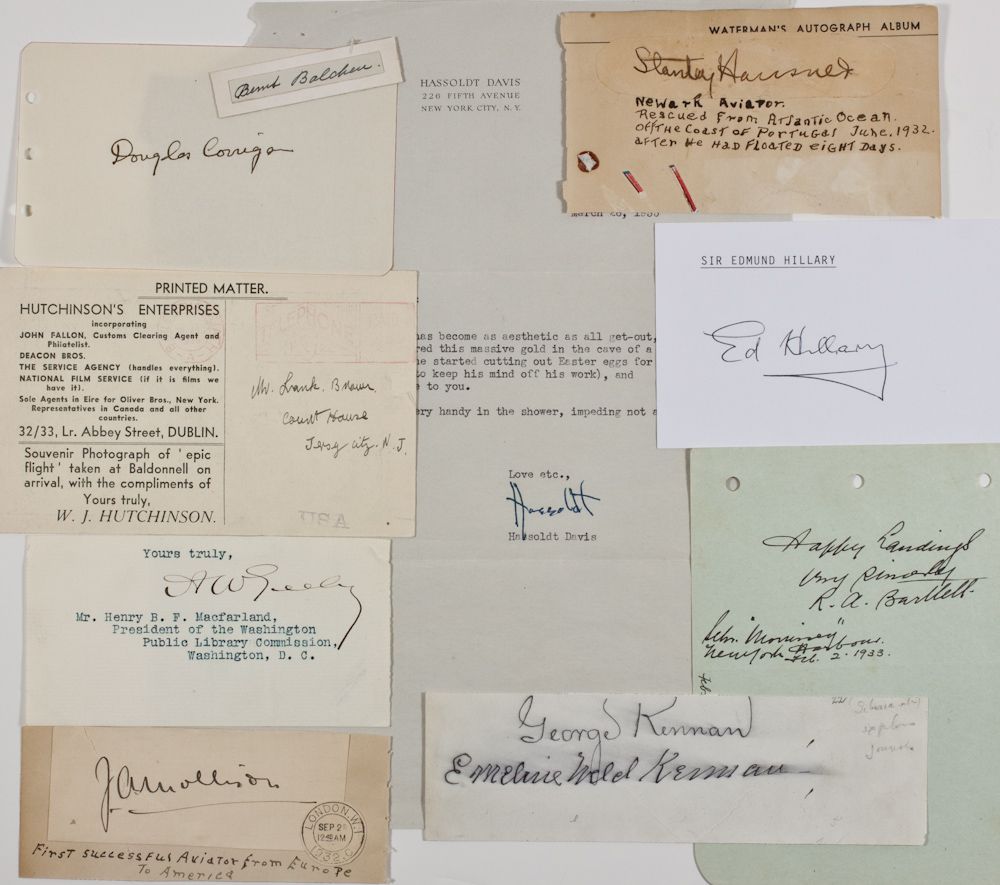 Bernt Balchen.
Douglas Corrigan
HASSOLDT DAVIS
226 FIFTH AVENUE
NEW YORK CITY, N. Y.
WATERMAN'S AUTOGRAPH ALBUM
Stanley Hausner
Newark Aviator.
Rescued From Atlantic Ocean.
Off The Coast of Portugal June, 1932.
after He Had Floated eight Days.
SIR EDMUND HILLARY
Ed Hillary
PRINTED MATTER.
HUTCHINSON'S ENTERPRISES
incorporating
JOHN FALLON, Customs Clearing Agent and
Philatelist.
DEACON BROS.
THE SERVICE AGENCY (handles everything).
NATIONAL FILM SERVICE (if it is films we
have it).
Sole Agents in Eire for Oliver Bros., New York.
Representatives in Canada and all other
countries.
32/33, Lr. Abbey Street, DUBLIN.
Souvenir Photograph of 'epic
flight' taken at Baldonnell on
arrival, with the compliments of
Yours truly,
W. J. HUTCHINSON.
Mr. Frank. Brown
Court House
Jersey City. N. J.
USA
has become as aesthetic as all get-out,
red this massive gold in the cave of a
he started cutting out Easter eggs for
to keep his mind off his work), and
e to you.
ery handy in the shower, impeding not a
Love etc.,
Hassoldt
Hassoldt Davis
Yours truly,
A W Greely
Mr. Henry B. F. Macfarland,
President of the Washington
Public Library Commission,
Washington, D. C.
Happy Landings
Very Sincerely
R. A. Bartlett.
Schr. "Morrissey"
New York Harbour.
Feb. 2. 1933.
George Kennan
Emeline Weld Kennan
J A Mollison
LONDON. W.1
SEP 2
12:45AM
1932
First successful Aviator from Europe
To America